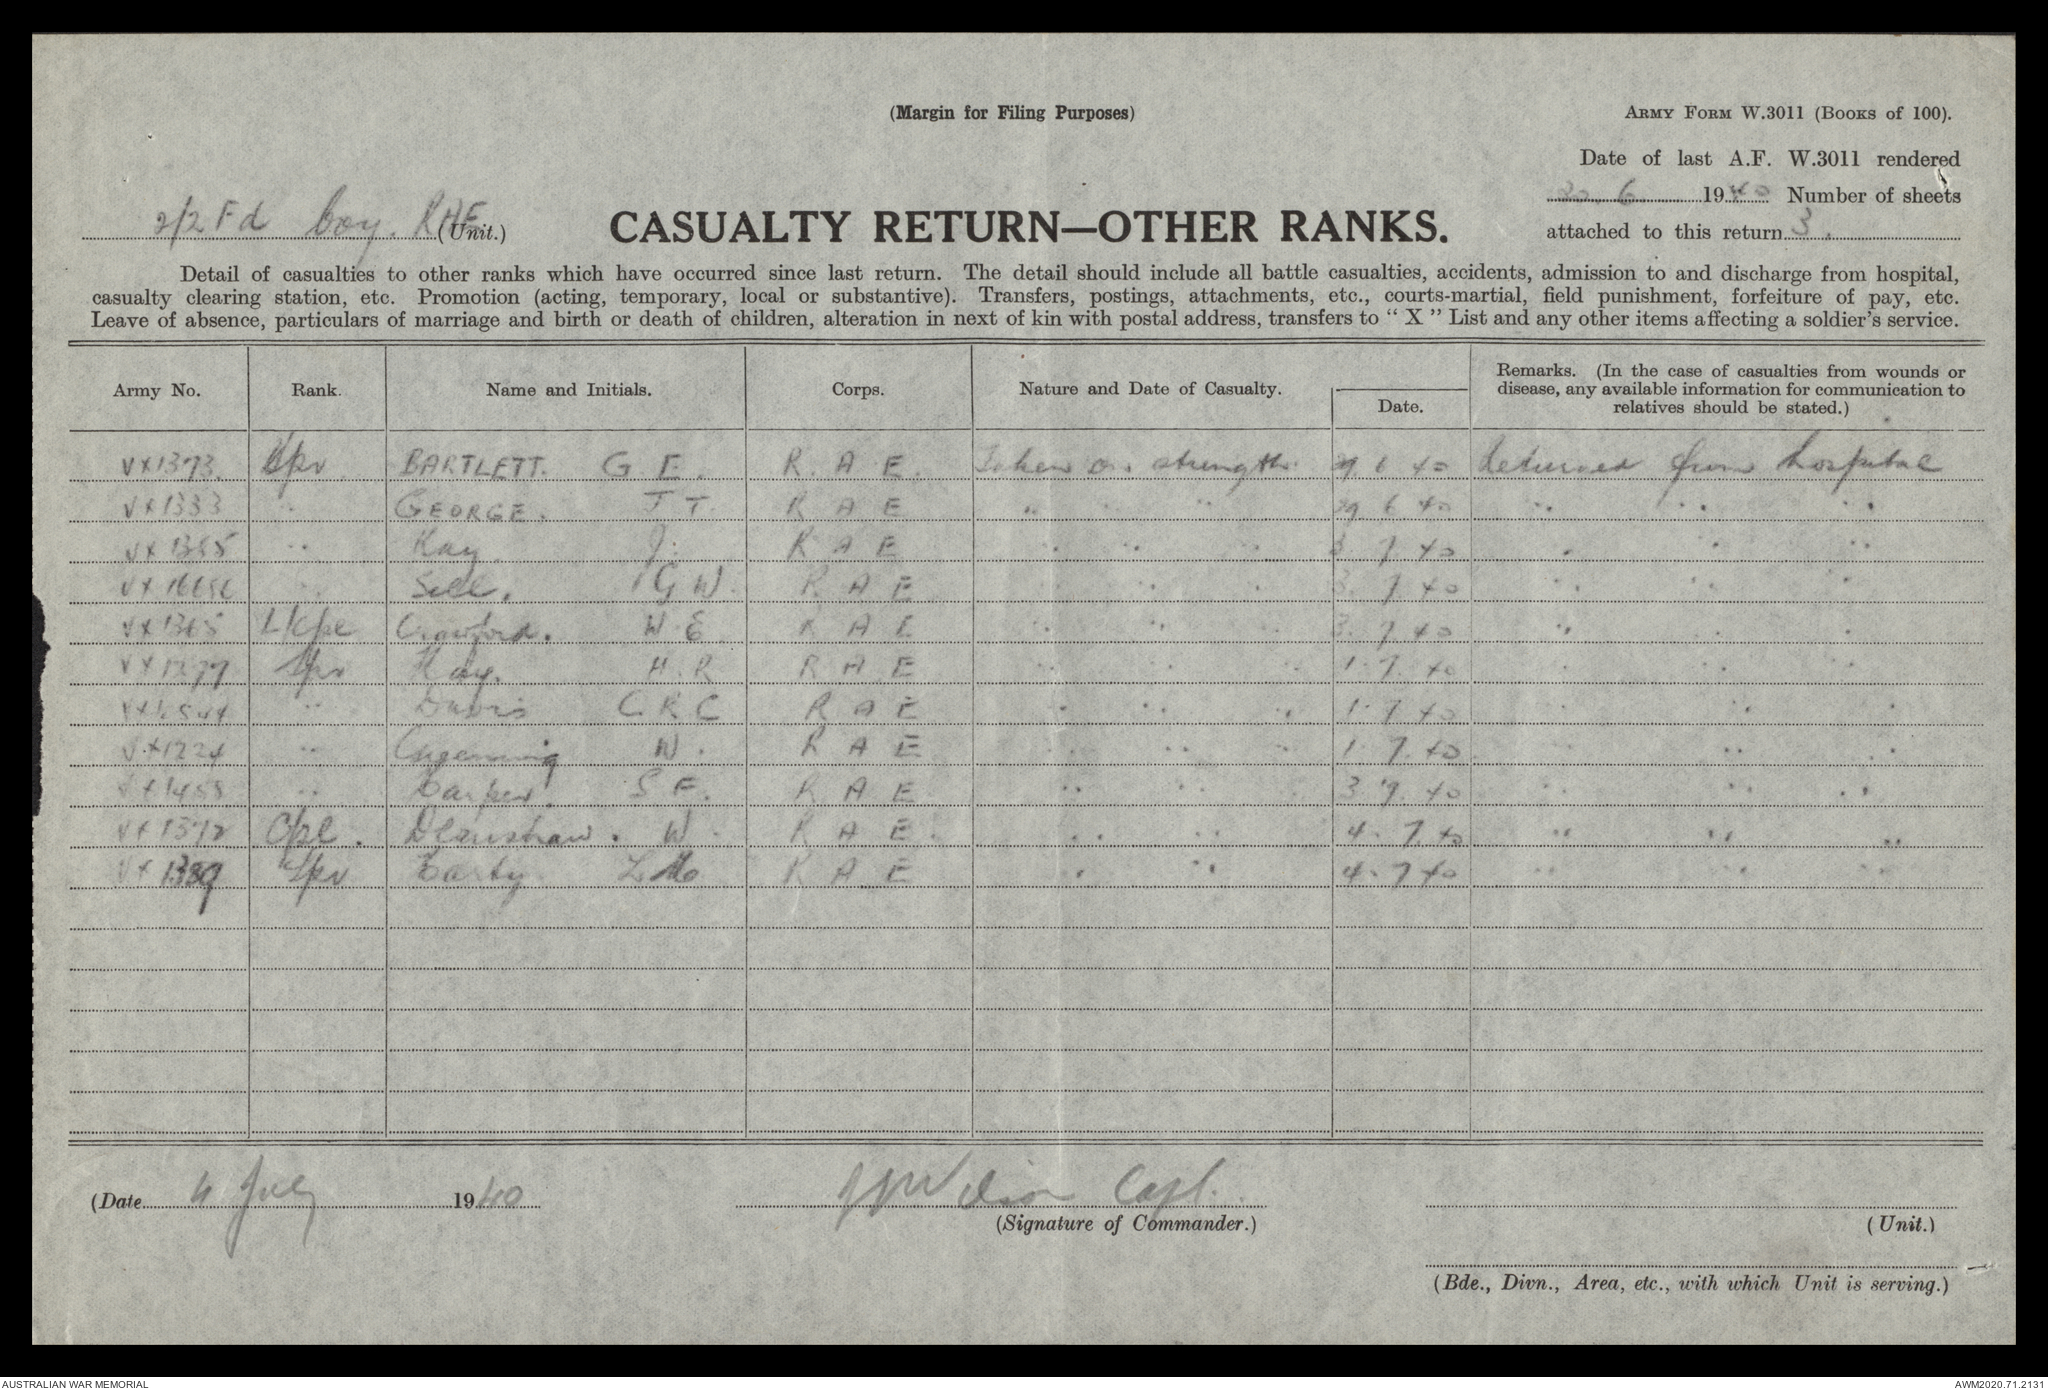 (Margin for Filing Purposes)
ARMY FORM W.3011 (BOOKS of 100).
Date of last A.F. W.3011 rendered
20. 6 1940 Number of sheets
attached to this return 3.
2/2 Fd Coy. RAE (Unit.)
CASUALTY RETURN—OTHER RANKS.
Detail of casualties to other ranks which have occurred since last return. The detail should include all battle casualties, accidents, admission to and discharge from hospital,
casualty clearing station, etc. Promotion (acting, temporary, local or substantive). Transfers, postings, attachments, etc., courts-martial, field punishment, forfeiture of pay, etc.
Leave of absence, particulars of marriage and birth or death of children, alteration in next of kin with postal address, transfers to "X" List and any other items affecting a soldier's service.
Army No. Rank. Name and Initials. Corps. Nature and Date of Casualty. Date. Remarks. (In the case of casualties from wounds or
disease, any available information for communication to
relatives should be stated.)
VX1373. Spr BARTLETT. G E. R. A E. Taken on strength 29. 6 40 Returned from hospital
VX1333 " GEORGE. J T. R A E " " " 29. 6 40 " " "
" Kay. J. R A E " " " 3 7 40 " " "
" Sell. G W. R A E " " " 3. 7 40 " " "
VX1365 L/Cpl Crawford. W E R A E " " " 3. 7 40 " " "
Spr H. R R A E " " " 1. 7. 40 " " "
" Davis C R C R A E " " " 1. 7 40 " " "
" W. R A E " " " 1. 7. 40 " " "
" S F. R A E " " " 3 7. 40 " " "
VX1372 Cpl. W. R A E. " " 4. 7. 40 " " "
VX1389 Spr Carty R A E " " 4. 7 40 " " "
(Date 4 July 1940
Wilson Capt.
(Signature of Commander.)
(Unit.)
(Bde., Divn., Area, etc., with which Unit is serving.)
AUSTRALIAN WAR MEMORIAL
AWM2020.71.2131